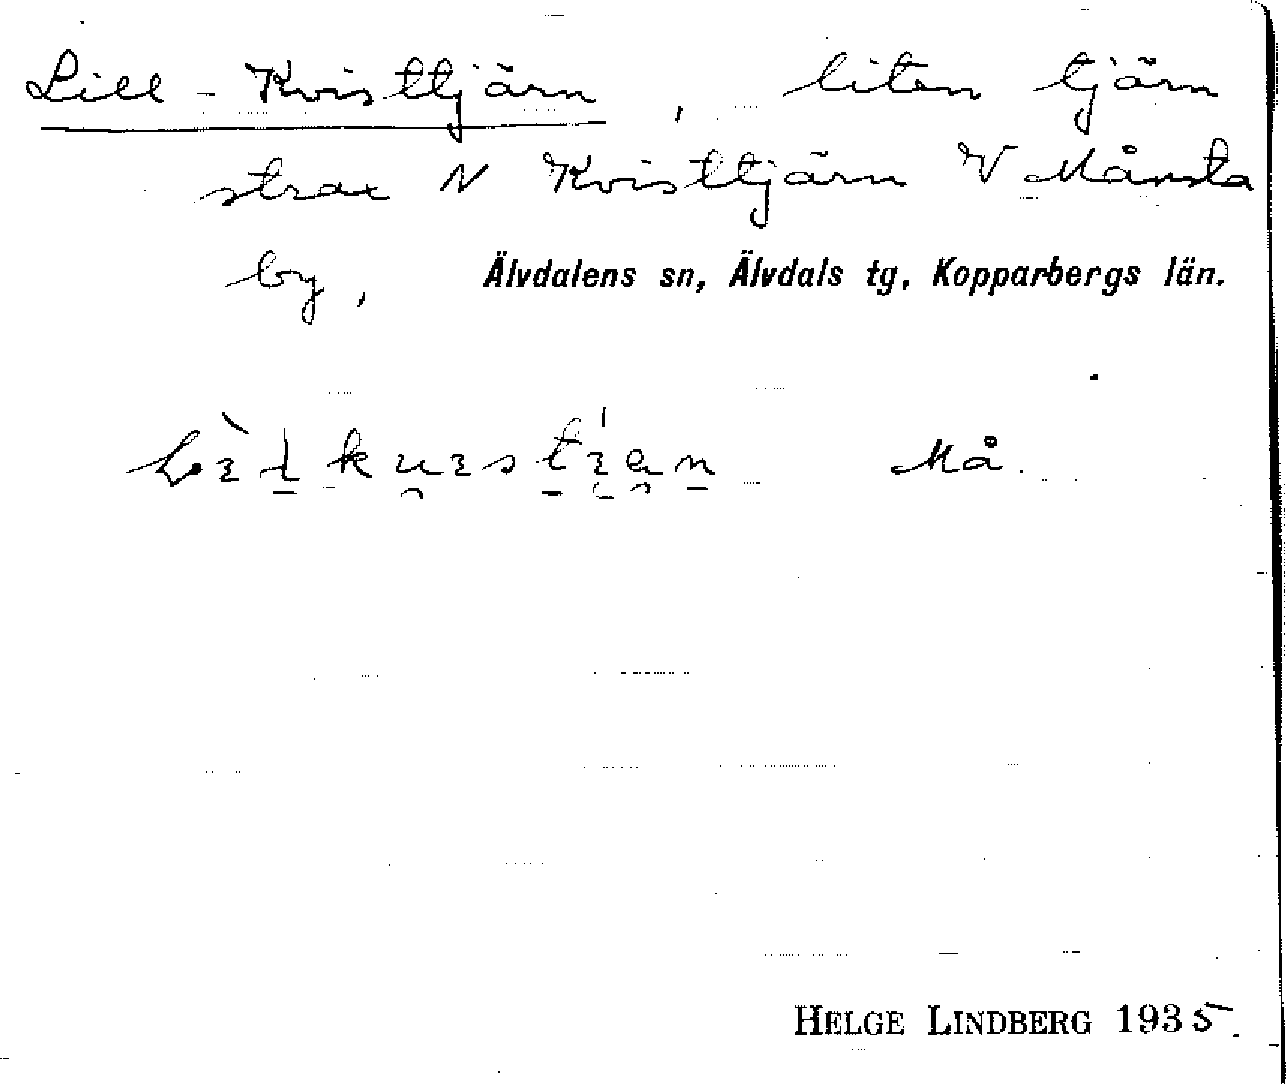 Lill-Kvisttjärn, liten tjärn
strax N Kvisttjärn V Månsta
by, Älvdalens sn, Älvdals tg, Kopparbergs län.
Må.
HELGE LINDBERG 1935.